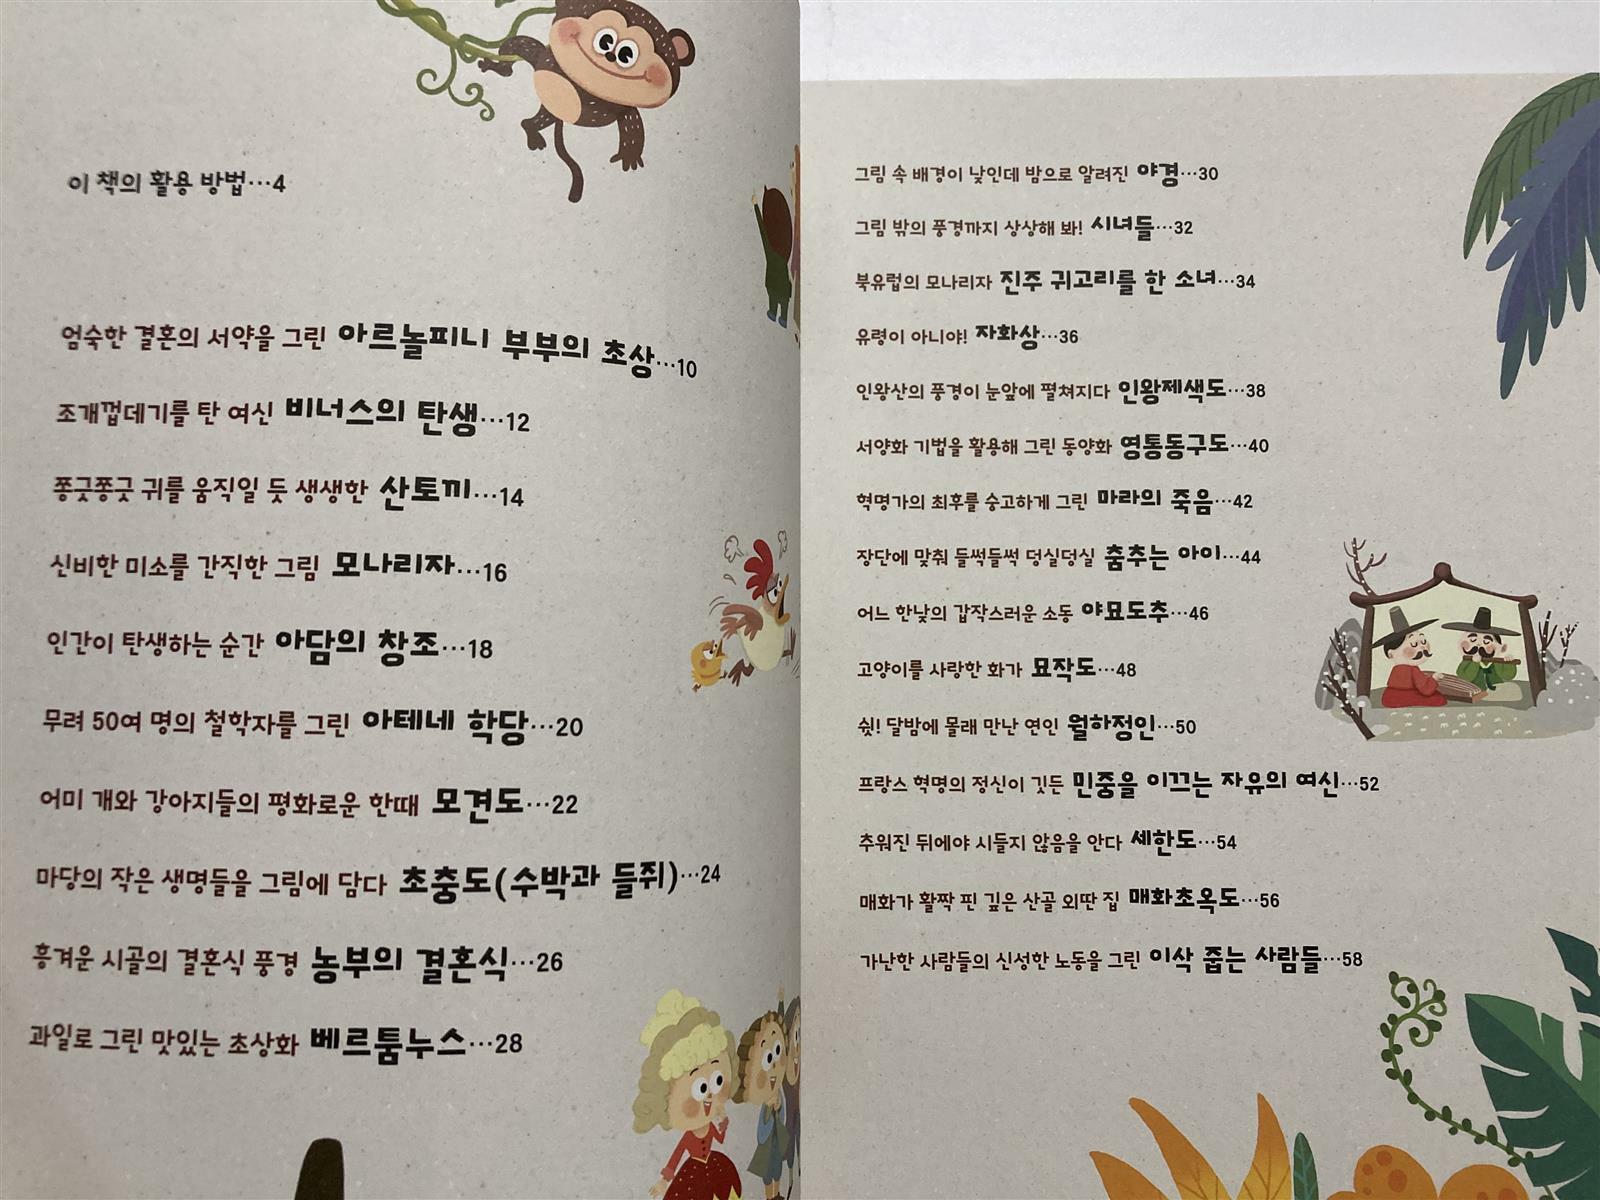 이 책의 활용 방법…4
엄숙한 결혼의 서약을 그린 아르놀피니 부부의 초상…10
조개껍데기를 탄 여신 비너스의 탄생…12
쫑긋쫑긋 귀를 움직일 듯 생생한 산토끼…14
신비한 미소를 간직한 그림 모나리자…16
인간이 탄생하는 순간 아담의 창조…18
무려 50여 명의 철학자를 그린 아테네 학당…20
어미 개와 강아지들의 평화로운 한때 모견도…22
마당의 작은 생명들을 그림에 담다 초충도(수박과 들쥐)…24
흥겨운 시골의 결혼식 풍경 농부의 결혼식…26
과일로 그린 맛있는 초상화 베르툼누스…28
그림 속 배경이 낮인데 밤으로 알려진 야경…30
그림 밖의 풍경까지 상상해 봐! 시녀들…32
북유럽의 모나리자 진주 귀고리를 한 소녀…34
유령이 아니야! 자화상…36
인왕산의 풍경이 눈앞에 펼쳐지다 인왕제색도…38
서양화 기법을 활용해 그린 동양화 영통동구도…40
혁명가의 최후를 숭고하게 그린 마라의 죽음…42
장단에 맞춰 들썩들썩 덩실덩실 춤추는 아이…44
어느 한낮의 갑작스러운 소동 야묘도추…46
고양이를 사랑한 화가 묘작도…48
쉿! 달밤에 몰래 만난 연인 월하정인…50
프랑스 혁명의 정신이 깃든 민중을 이끄는 자유의 여신…52
추워진 뒤에야 시들지 않음을 안다 세한도…54
매화가 활짝 핀 깊은 산골 외딴 집 매화초옥도…56
가난한 사람들의 신성한 노동을 그린 이삭 줍는 사람들…58